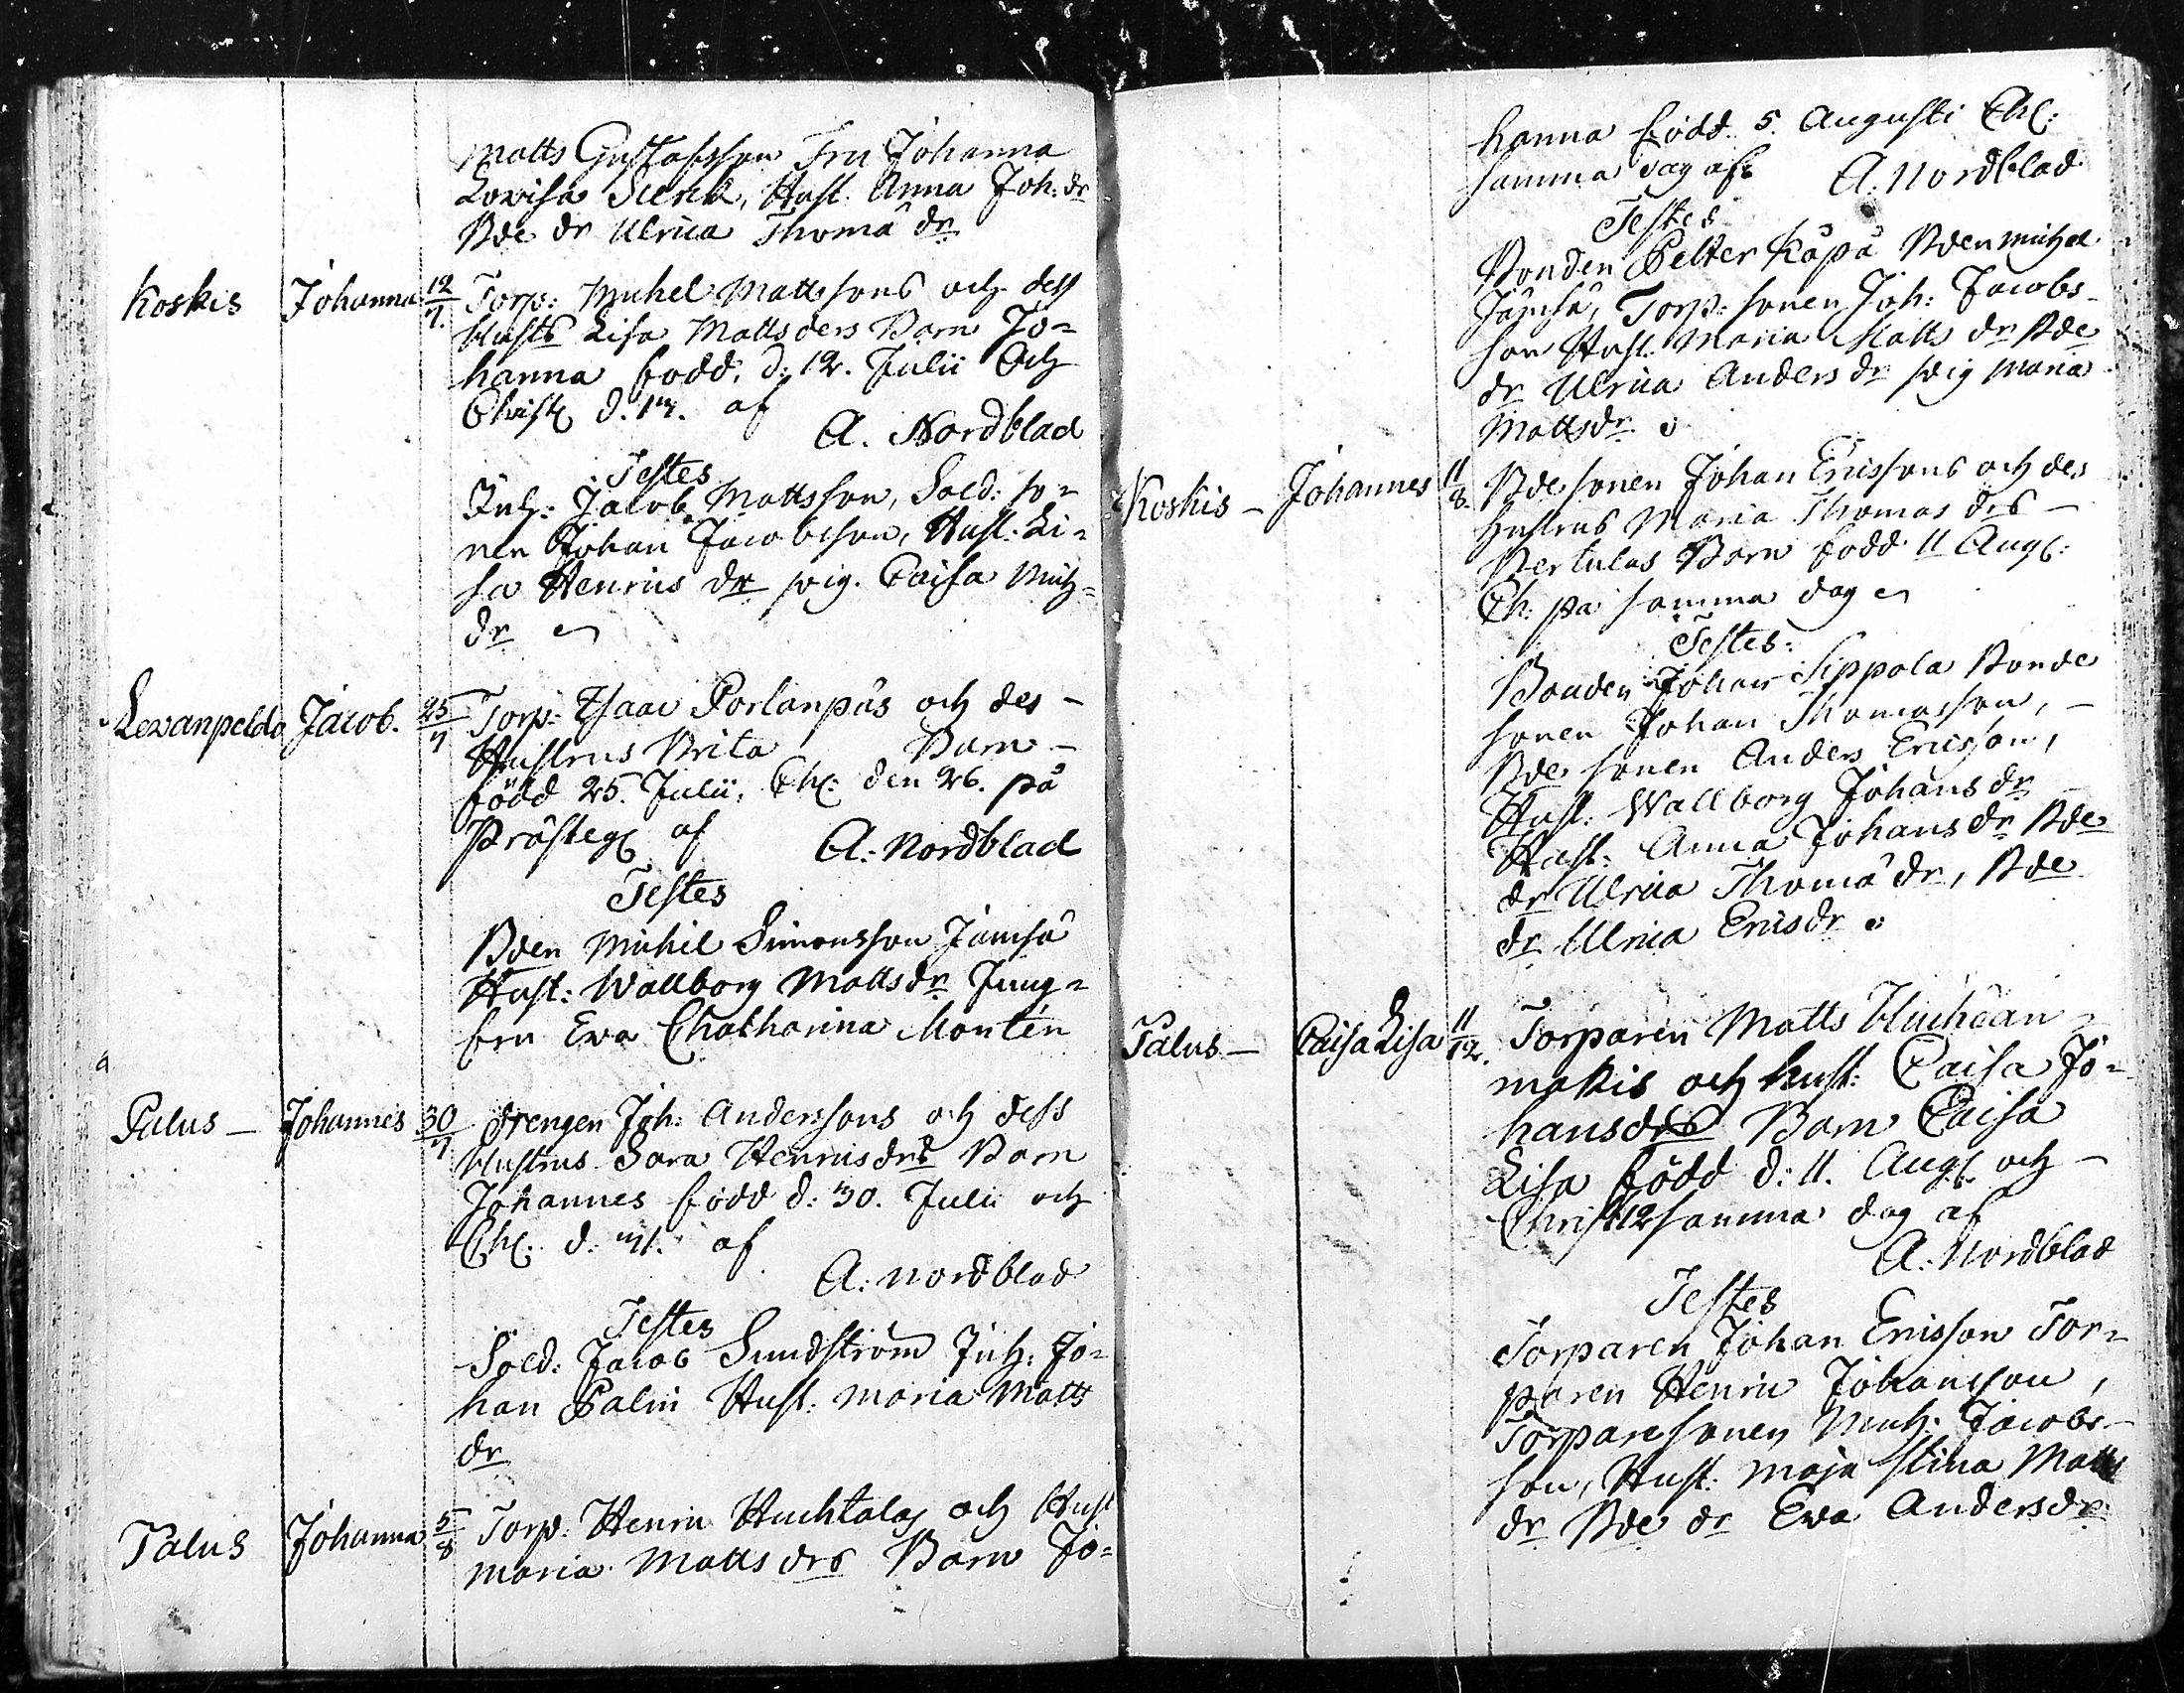 Matts Gustafsson Fru Johanna
Lovisa Sierck, Hust. Anna Joh: dr
Bde dr Ulrica Thomæ dr
Koskis Johanna 12/7. Torp: Michel Mattssons och dess
Hustrs Lisa Matts ders Barn Jo=
hanna född. d: 12. Julii Och
Christ d. 13. af
A. Nordblad
Testes
Inh: Jacob Mattsson, Sold: so=
nen Johan Jacobsson, Hust. Li=
sa Henrics dr pig. Caisa Mich=
dr
Levanpeldo Jacob. 25/7 Torp: Isaac Porlanpäs och des -
Hustrus Brita Barn -
född 25. Julii, Ch: den 26. på
Prästeg af
A: Nordblad
Testes
Bden Michil Simonsson Jämsä
Hust: Wallborg Mattsdr Jung=
fru Eva Chatharina Montén
Palus - Johannes 30/7 drengen Joh: Anderssons och dess
Hustrus Sara Henricsdrs Barn
Johannes född d: 30. Julii och
Ch: d. 31. af
A: Nordblad
Testes
Sold: Jacob Sundström Inh: Jo=
han Palin Hust. Maria Matts
dr
Palus Johanna 5/8 Torp: Henric Huchtalas och Hust
Maria Matts drs Barn Jo=
hanna född 5. Augusti Ch:
samma dag af
A: Nordblad
Testes
Bonden Petter Käpä Bden Michel
Jämsä, Torp: sonen Joh: Jacobs-
son Hust. Maria Matts dr Bde
dr Ulrica Anders dr pig Maria
Mattsdr
Koskis - Johannes 11/8. Bde sonen Johan Ericssons och des
Hustrus Maria Thomas drs -
Bertulas Barn född 11 Aug:
Ch: på samma dag
Testes:
Bonden Johan Sippola Bonde
sonen Johan Thomasson, -
Bde sonen Anders Ericsson,
Hust: Wallborg Johans dr
Hust: Anna Johans dr Bde
dr Ulrica Thomæ dr, Bde
dr Ulrica Ericsdr
Palus - Caisa Lisa 11/12. Torparen Matts Huihean=
makis och hust: Caisa Jo=
hansdrs Barn Caisa
Lisa född d: 11. Aug: och -
Christ 12 samma dag af
A: Nordblad
Testes
Torparen Johan Ericsson Tor=
paren Henric Johansson,
Torparesonen Mich: Jacobs-
son, Hust: Maja Stina Matts
dr Bde dr Eva Andersdr